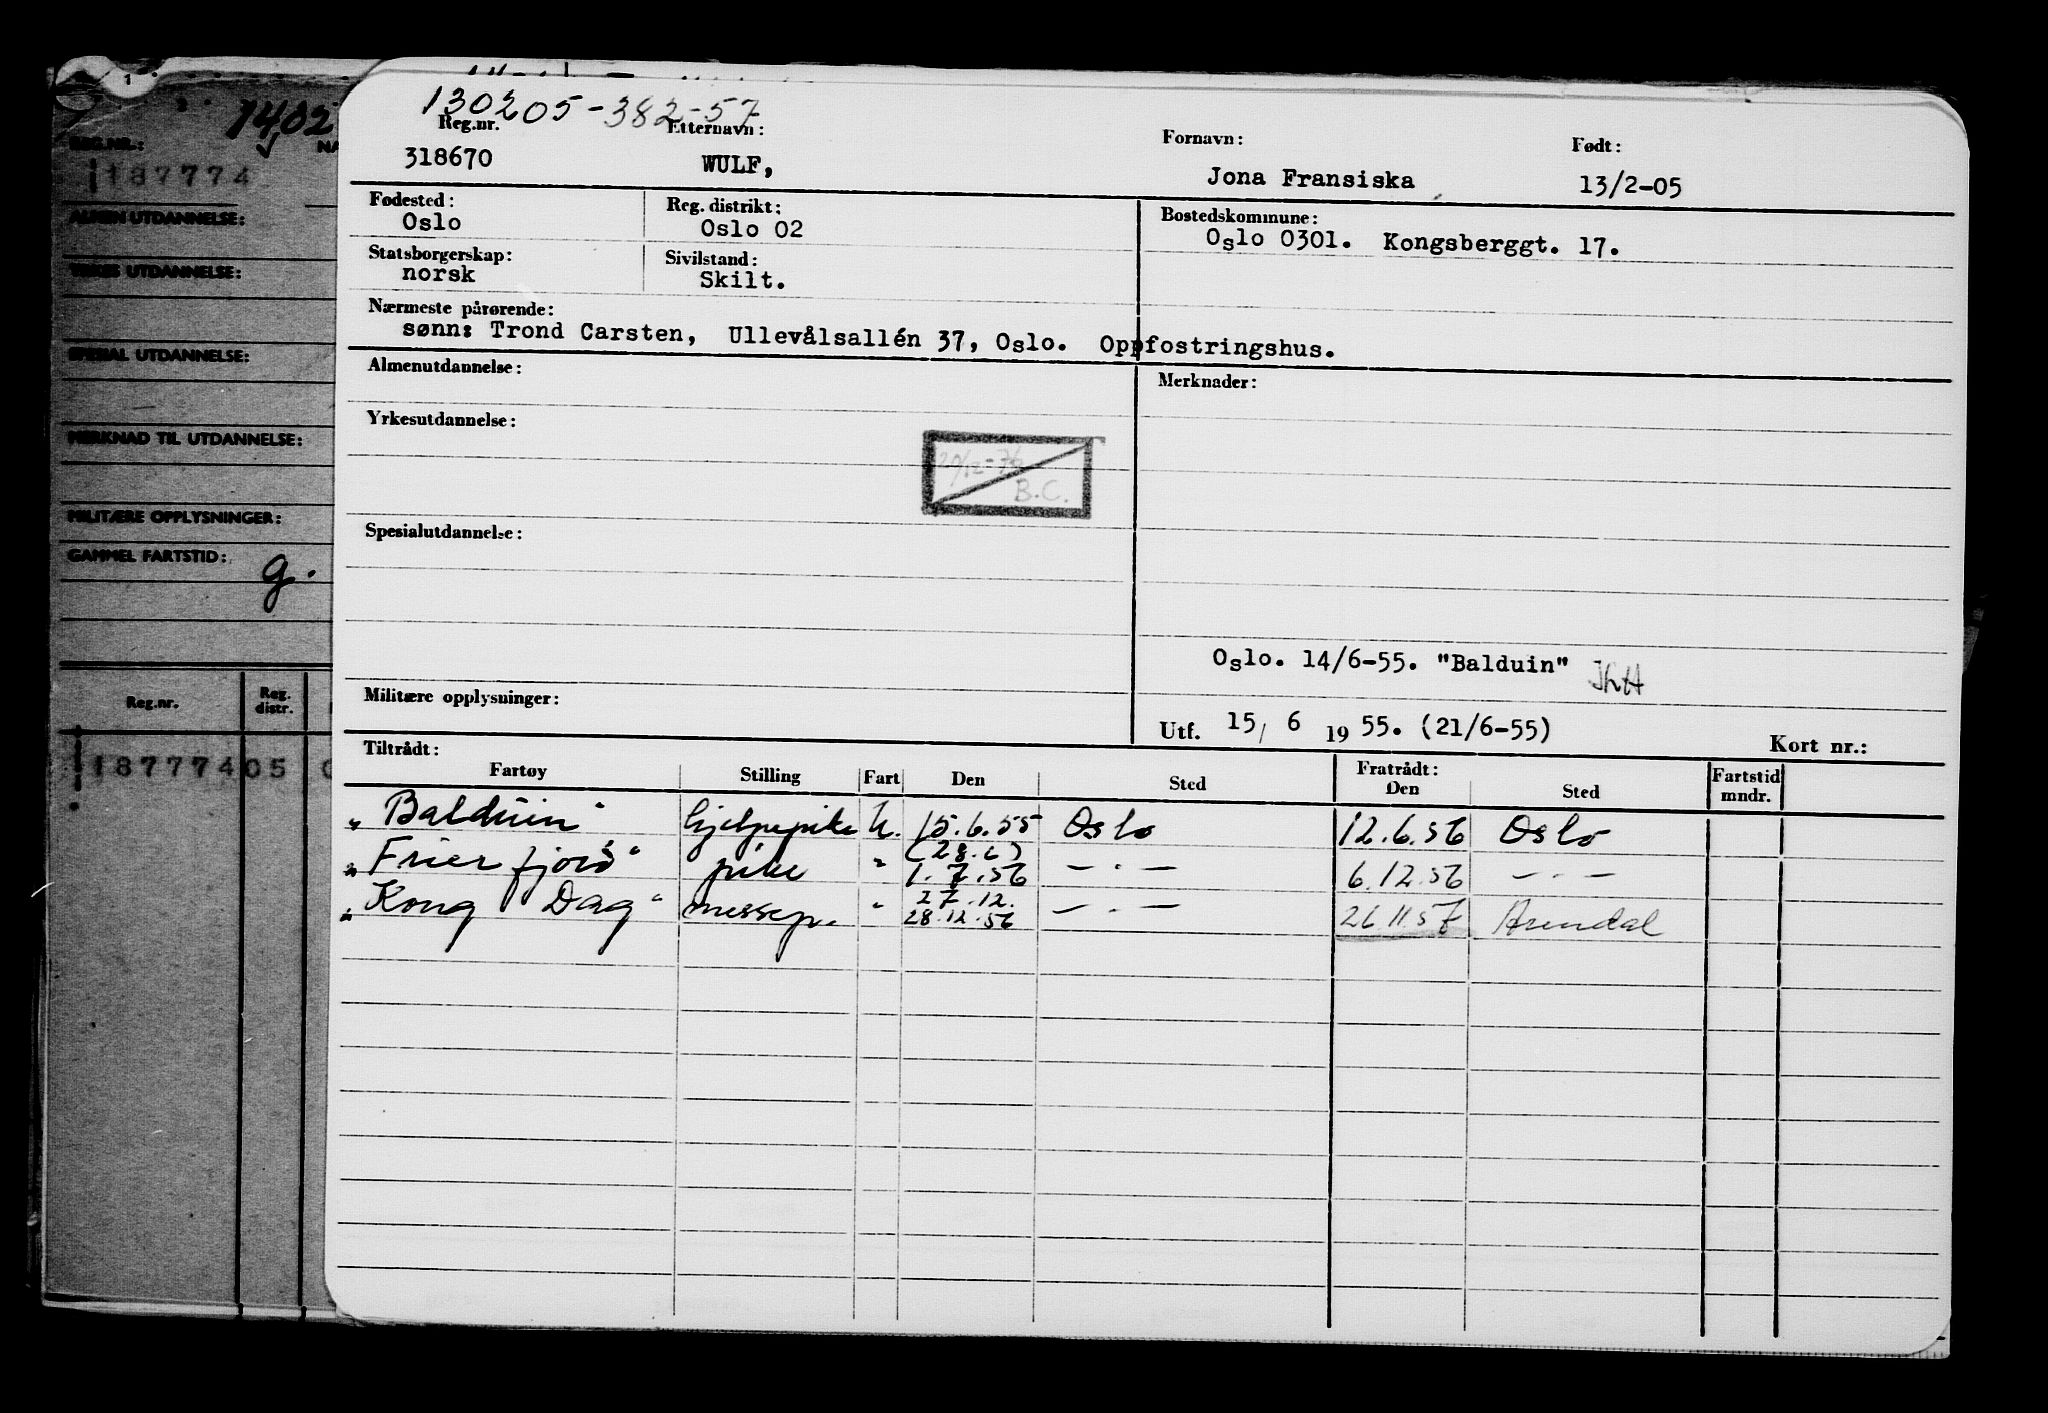 130205-382-57
Reg.nr. Etternavn: Fornavn: Født:
318670 WULF, Jona Fransiska 13/2-05
Fødested: Reg. distrikt: Bostedskommune:
Oslo Oslo 02 Oslo 0301. Kongsberggt. 17.
Statsborgerskap: Sivilstand:
norsk Skilt.
Nærmeste pårørende:
sønn: Trond Carsten, Ullevålsallén 37, Oslo. Oppfostringshus.
Almenutdannelse: Merknader:
Yrkesutdannelse:
B.C.
Spesialutdannelse:
Oslo. 14/6-55. "Balduin"
Militære opplysninger:
Utf. 15/ 6 1955. (21/6-55) Kort nr.:
Tiltrådt: Fratrådt:
Fartøy Stilling Fart Den Sted Den Sted Fartstid mndr.
"Balduin" hjelpepike U. 15.6.55 Oslo 12.6.56 Oslo
(28.6)
"Frierfjord" pike " 1.7.56 — . — 6.12.56 — . —
27.12.
"Kong Dag" messep. " 28.12.56 — . — 26.11.57 Arendal
1
1402
REG.NR.: NA
187774
ALMEN UTDANNELSE:
YRKES UTDANNELSE:
SPESIAL UTDANNELSE:
MERKNAD TIL UTDANNELSE:
MILITÆRE OPPLYSNINGER:
GAMMEL FARTSTID:
g.
Reg.nr. Reg. distr.
187774 05 0